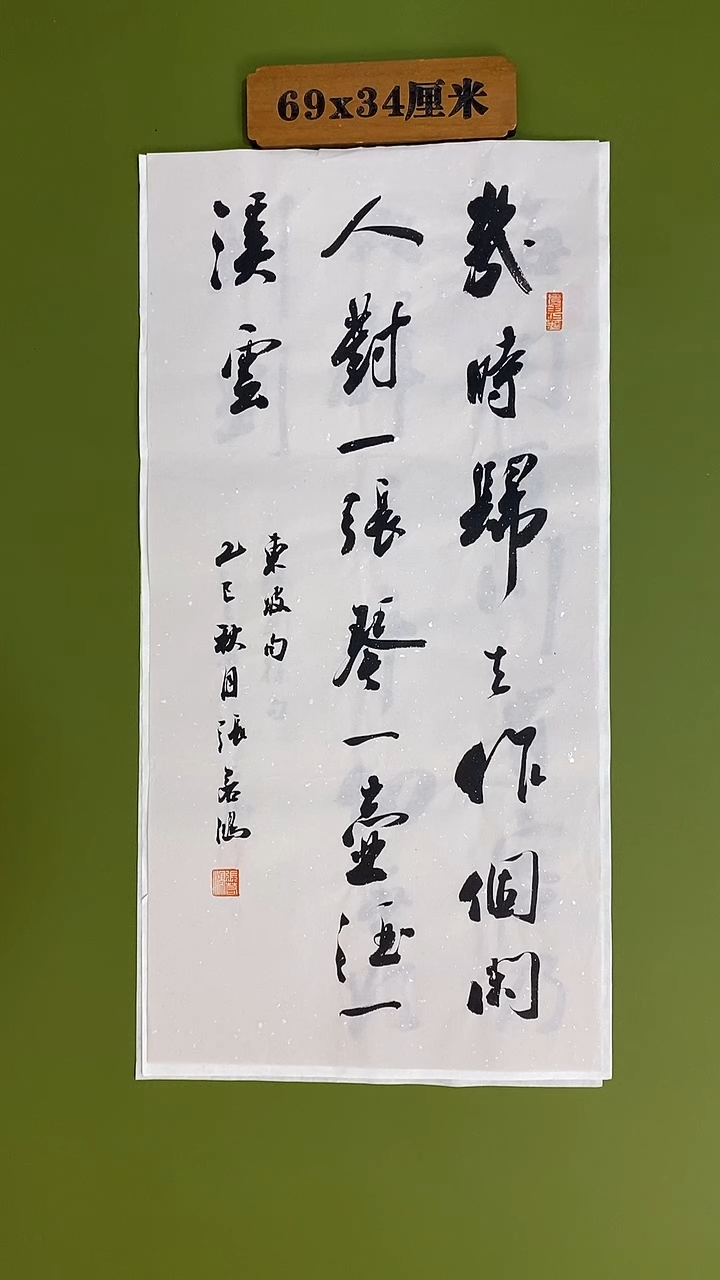 69x34厘米
幾時歸去作個閑
人對一張琴一壺酒一
溪雲
東坡句
乙巳秋月張若涵